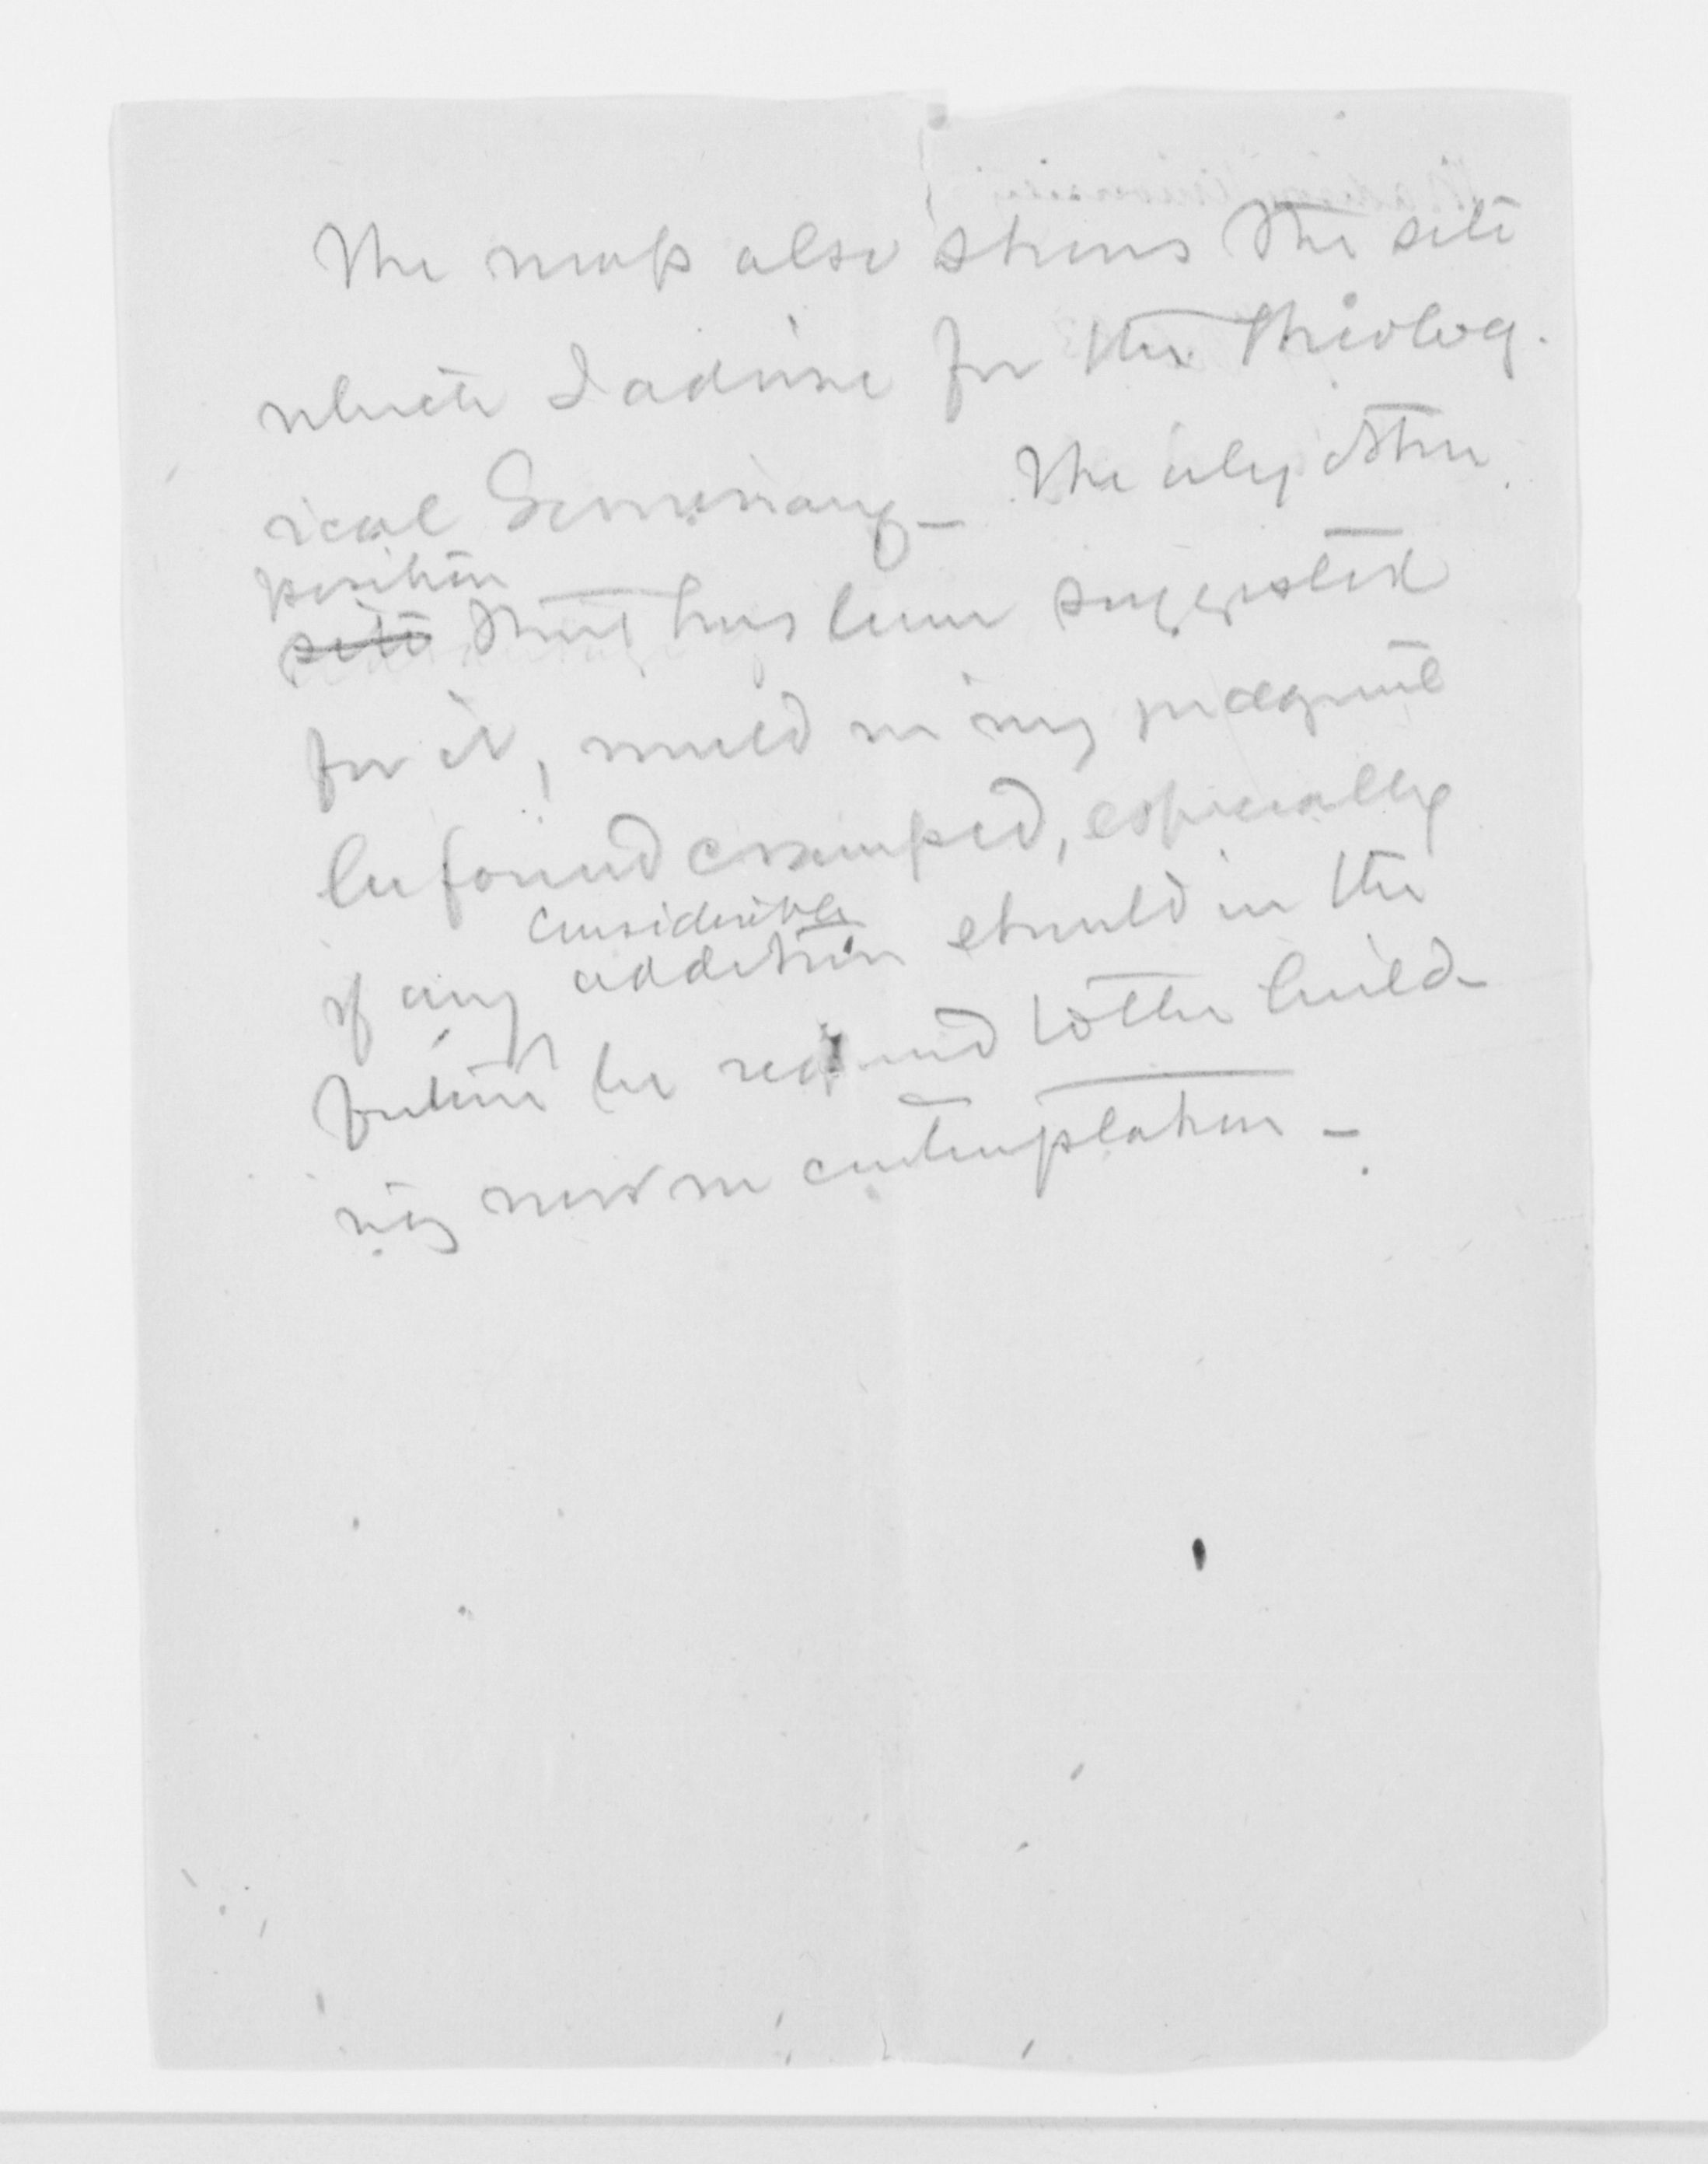 The map also shows the site
which I advise for the Theolog.
ical Seminary_ The only other
position
site that has been suggested
for it, would in my judgment
be found cramped, especially
considerable
if any addition should in the
future be required to the build-
ing now in contemplation_